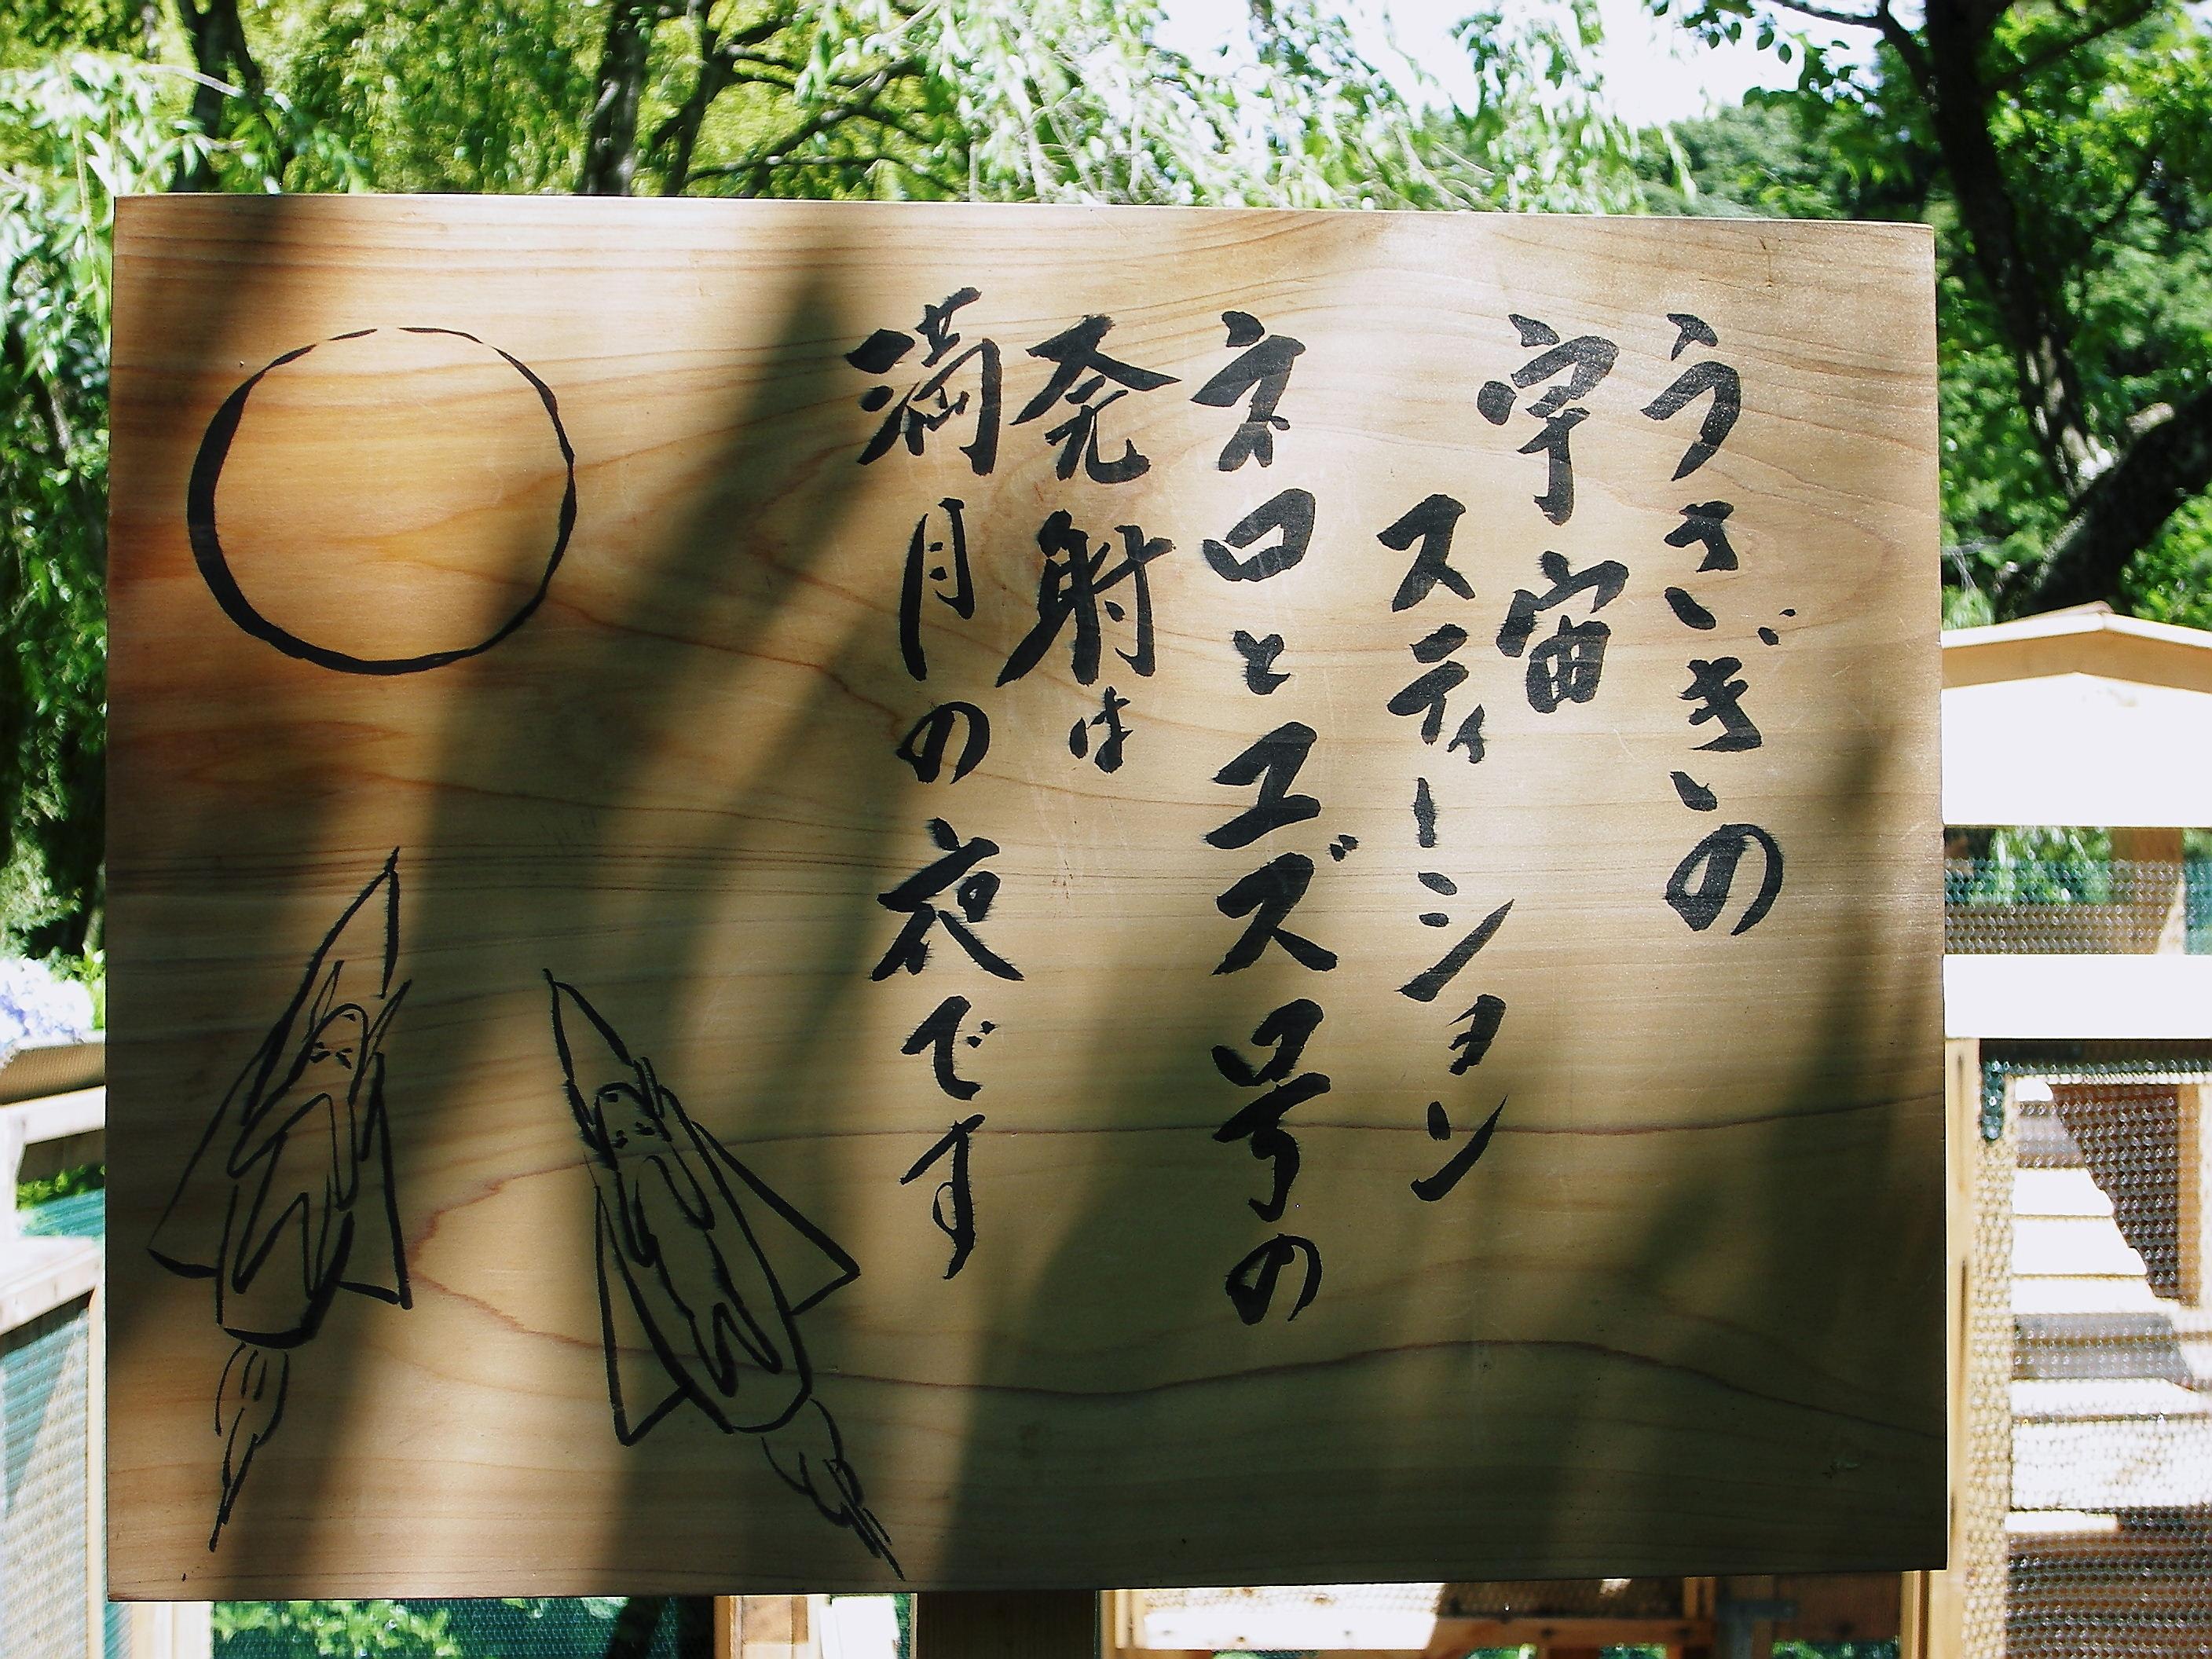 うさぎの
宇宙
ステーション
ネロとユズ号の
発射は
満月の夜です